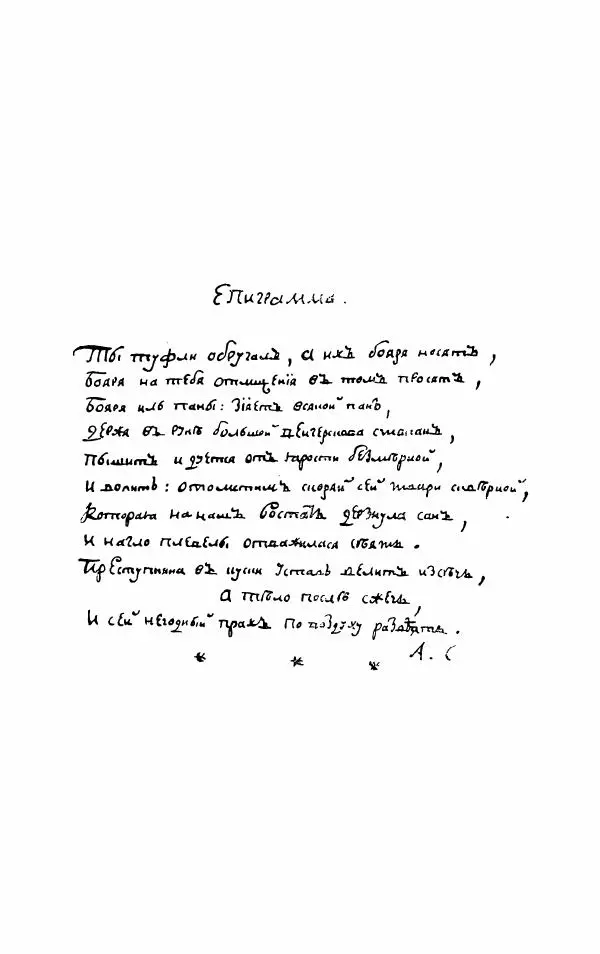 Епиграмма.
Ты туфли обругалъ, а ихъ бояра носятъ,
Бояра на тебя отмщенія въ томъ просятъ,
Бояра иль паны: зіяетъ всякой панъ,
Держа въ рукѣ большой венгерскова стаканъ,
Пышитъ и дуется отъ ярости безмѣрной,
И вопитъ: отомстимъ скоряй сей твари скаѣрной,
Которая на нашъ возстать дерзнула санъ,
И нагло плевелы отважилася сѣять.
Преступника въ куски усталъ велитъ изсѣчь,
А тѣло послѣ сжечь,
И сей негодный прахъ по воздуху развѣять.
А. С
* * *